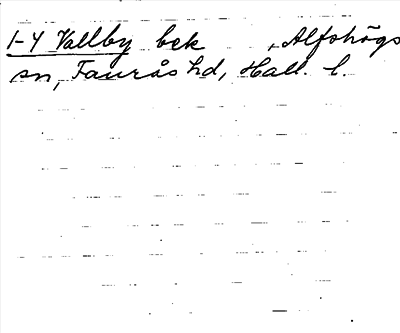 1-4 Vallby bek , Alfshögs
sn, Faurås hd, Hall. l.